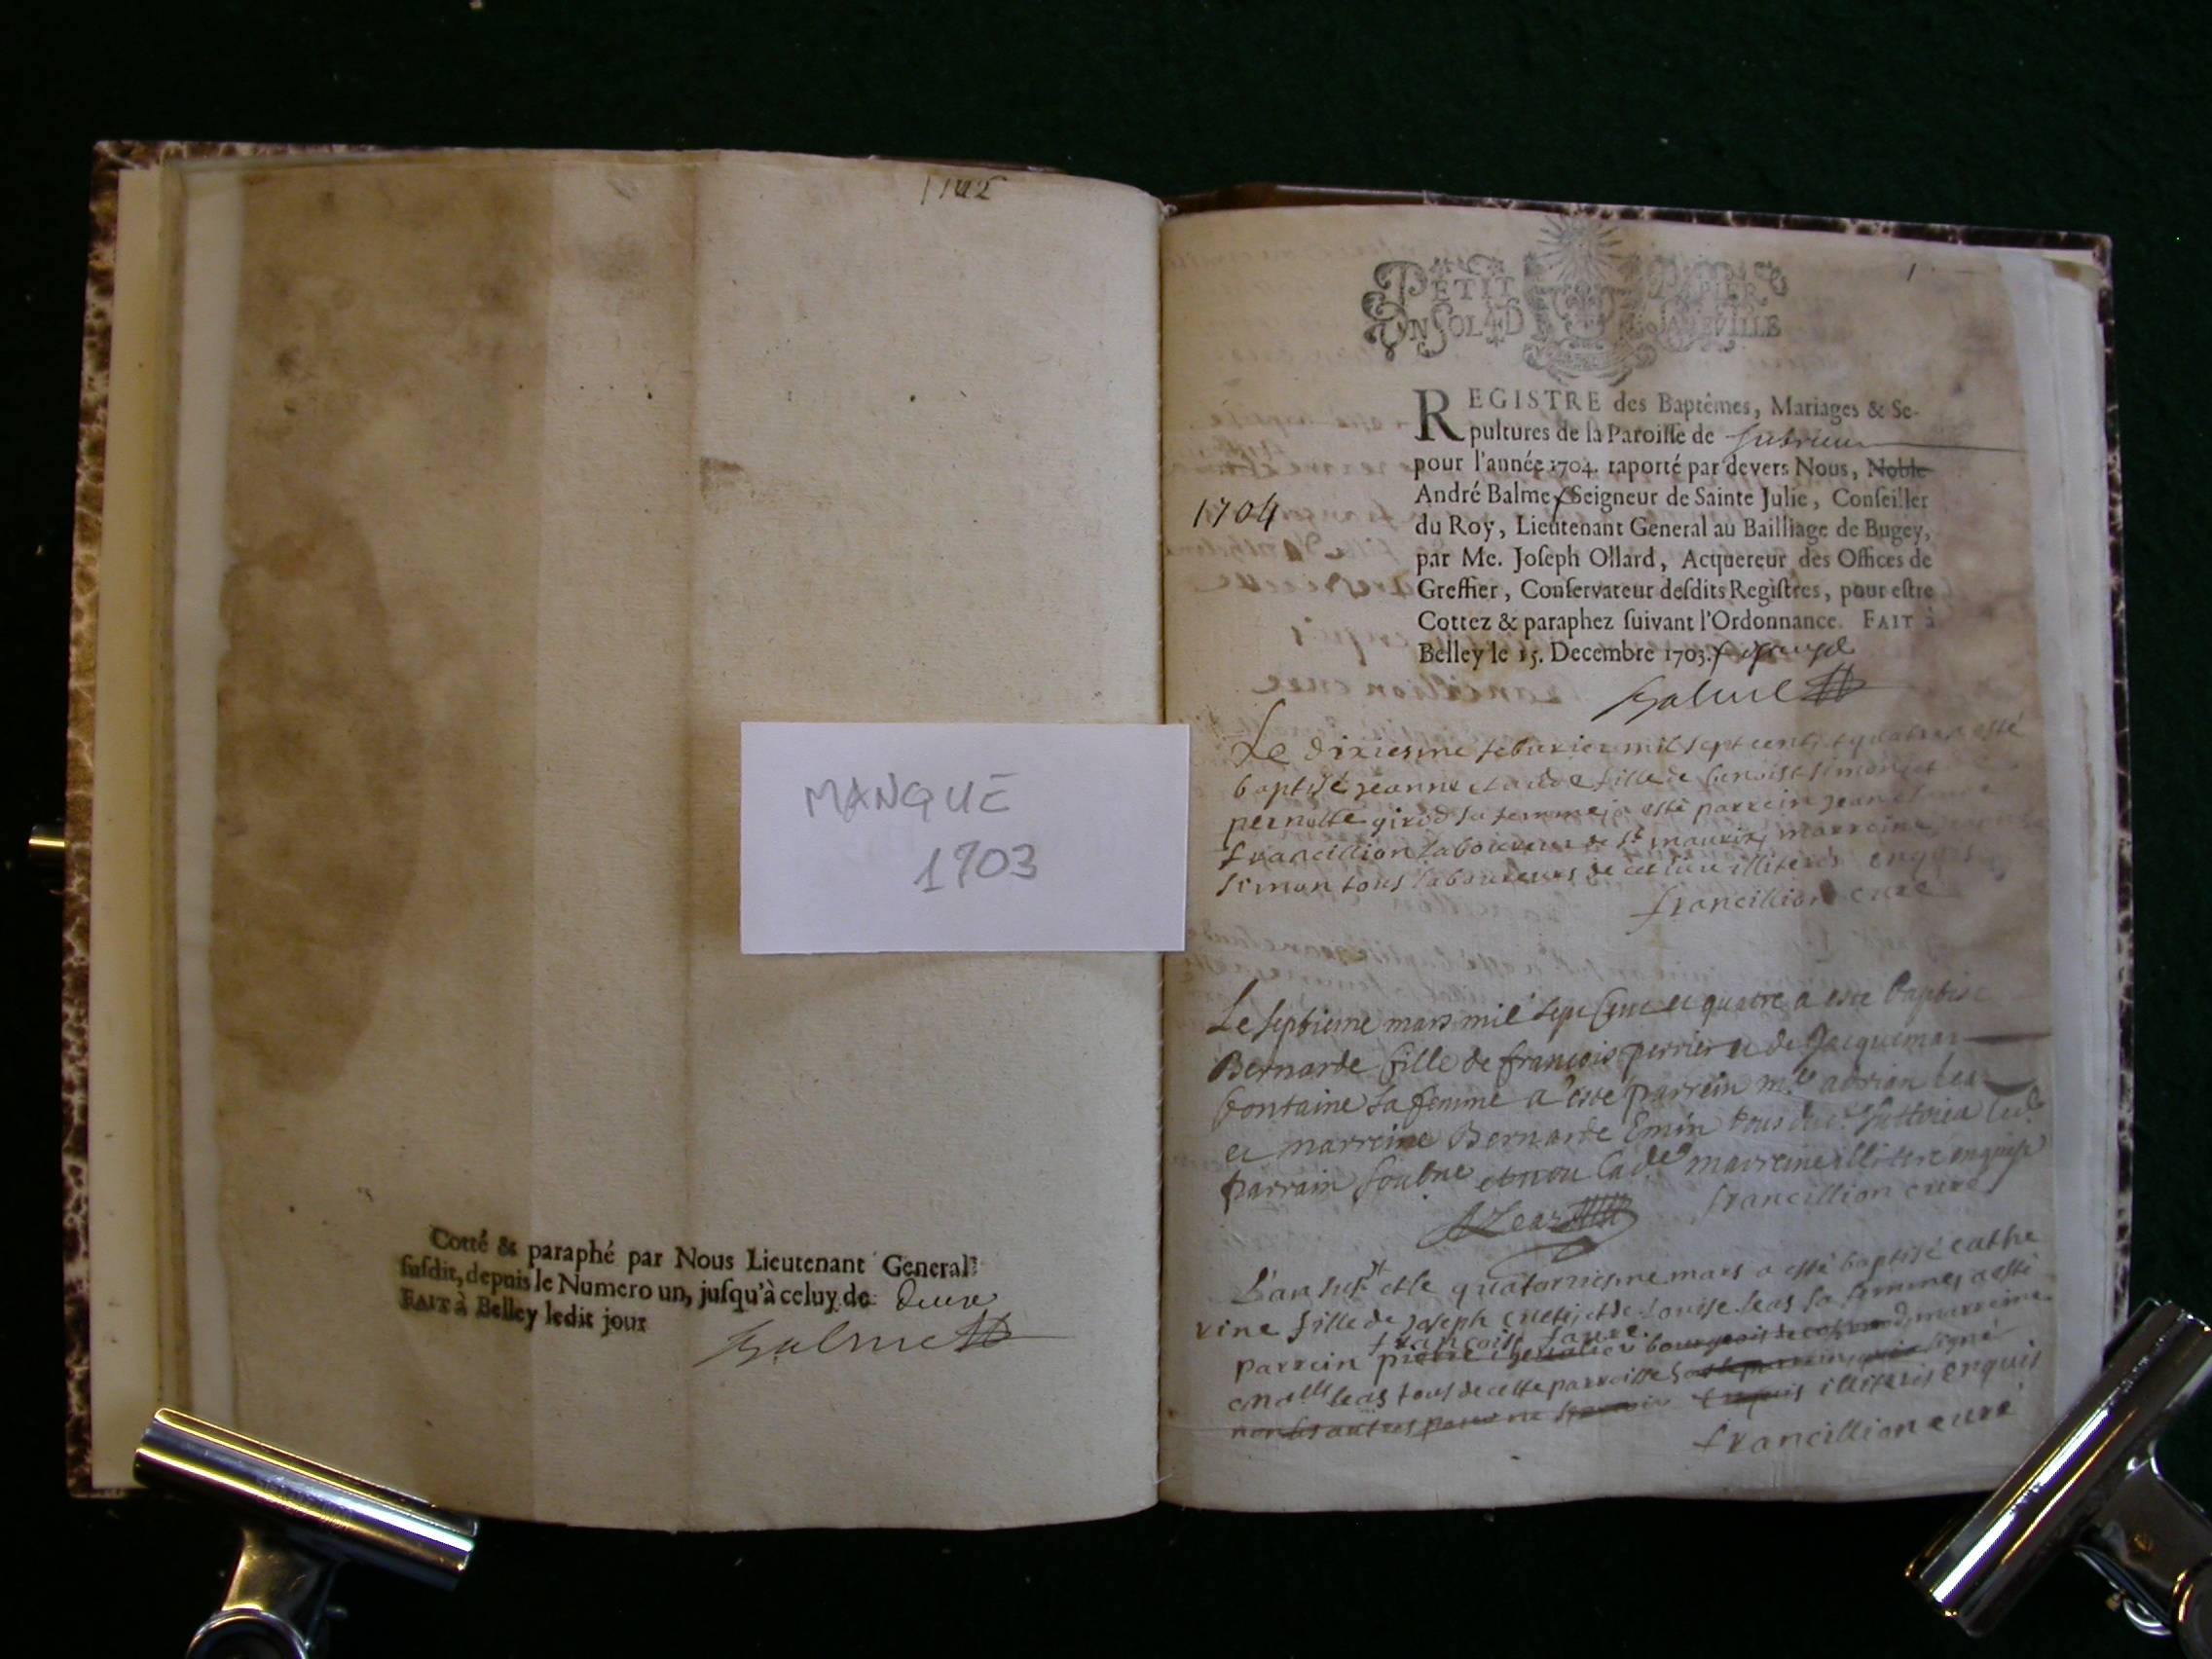 1702
Cotté & paraphé par Nous Lieutenant General
susdit, depuis le Numero un, jusqu'à celuy de deux
FAIT à Belley ledit jour
Balme
MANQUE
1703
1
PETIT PAPIER
UN SOL 4 D LA FEVILLE
REGISTRE des Baptêmes, Mariages & Se-
pultures de la Paroisse de
pour l'année 1704. raporté par devers Nous, Noble
André Balme Seigneur de Sainte Julie, Conseiller
1704
du Roy, Lieutenant General au Bailliage de Bugey,
par Me. Joseph Ollard, Acquereur des Offices de
Greffier, Conservateur desdits Registres, pour estre
Cottez & paraphez suivant l'Ordonnance. FAIT à
Belley le 15. Decembre 1703.
Balme
Le dixiesme febvrier mil sept cents et quatre a esté
baptisé jeanne claude fille de benoist simon et
pernette girod sa femme, a esté parrein jean claude
francillion laboureur de st maurix, marreine
simon tous laboureurs de ce lieu illiteres enquis
francillion curé
Le septieme mars mil sept cent et quatre a esté baptisé
Bernarde fille de francois perrier et de Jacquemaz
fontaine sa femme a esté parrein mre adrian Leaz
et marreine Bernarde Emin tous dud.
parrain soubne et non lade marreine illitere enquise
ALeaz francillion curé
L'an susd et le quatorziesme mars a esté baptisé cathe
rine fille de joseph et de Louise leas sa femme, a esté
francois favre
parrein pierre chevalier bourgeois de marreine
leas tous de cette parroisse signé
non les autres pour ne enquis illiteres enquis
francillion curé